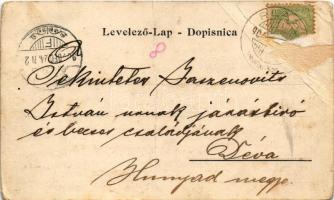 Levelező-Lap - Dopisnica
8
Tekintetes Jaszenovits
István urnak járásbiró
és becses családjának
Déva
Hunyad megye